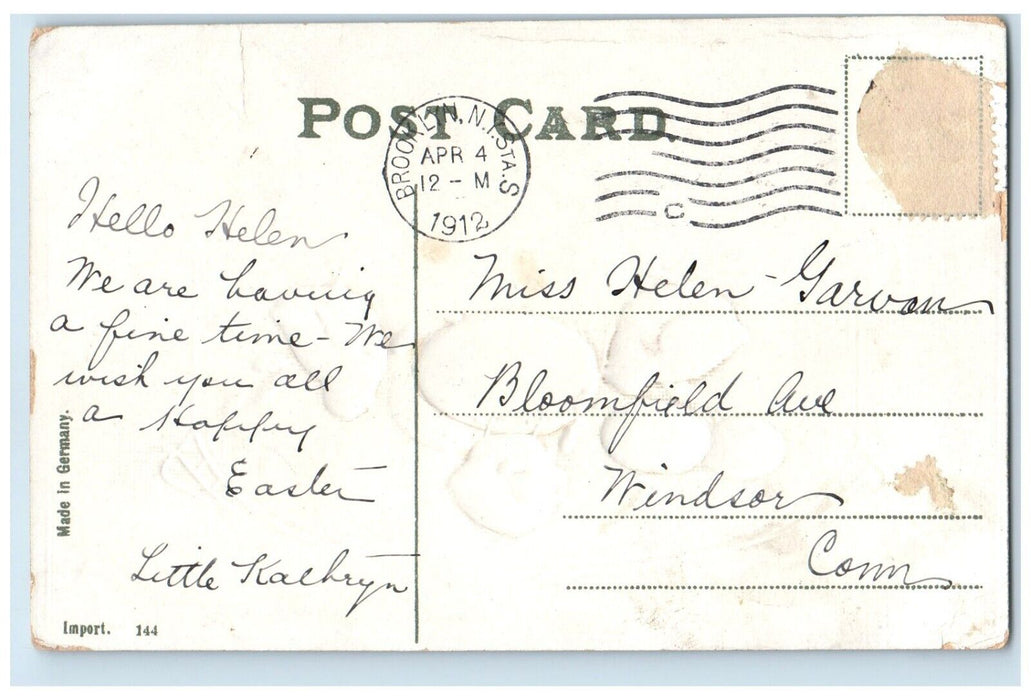 POST CARD.
BROOKLYN, N.Y. STA. S
APR 4
12 - M
1912
C
Hello Helen
We are having
a fine time - We
wish you all
a Happy
Easter
Little Kathryn
Miss Helen Garvan
Bloomfield Ave
Windsor
Conn
Made in Germany.
Import. 144